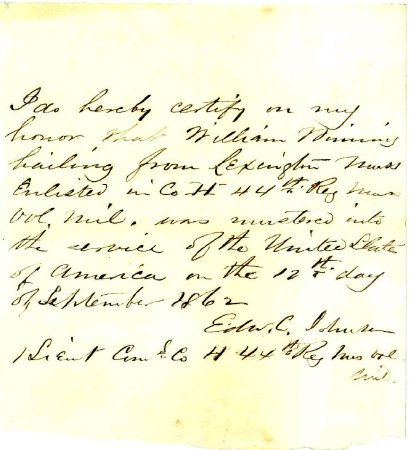 I do hereby certify on my
honor that William Wining
hailing from Lexington Mass
Enlisted in Co H 44th Reg Mass
Vol Mil. was mustered into
the service of the United State
of America on the 12th day
of September 1862
Edw. C. Johnson
1 Lieut Com'g Co H 44th Reg Mass Vol
Mil.